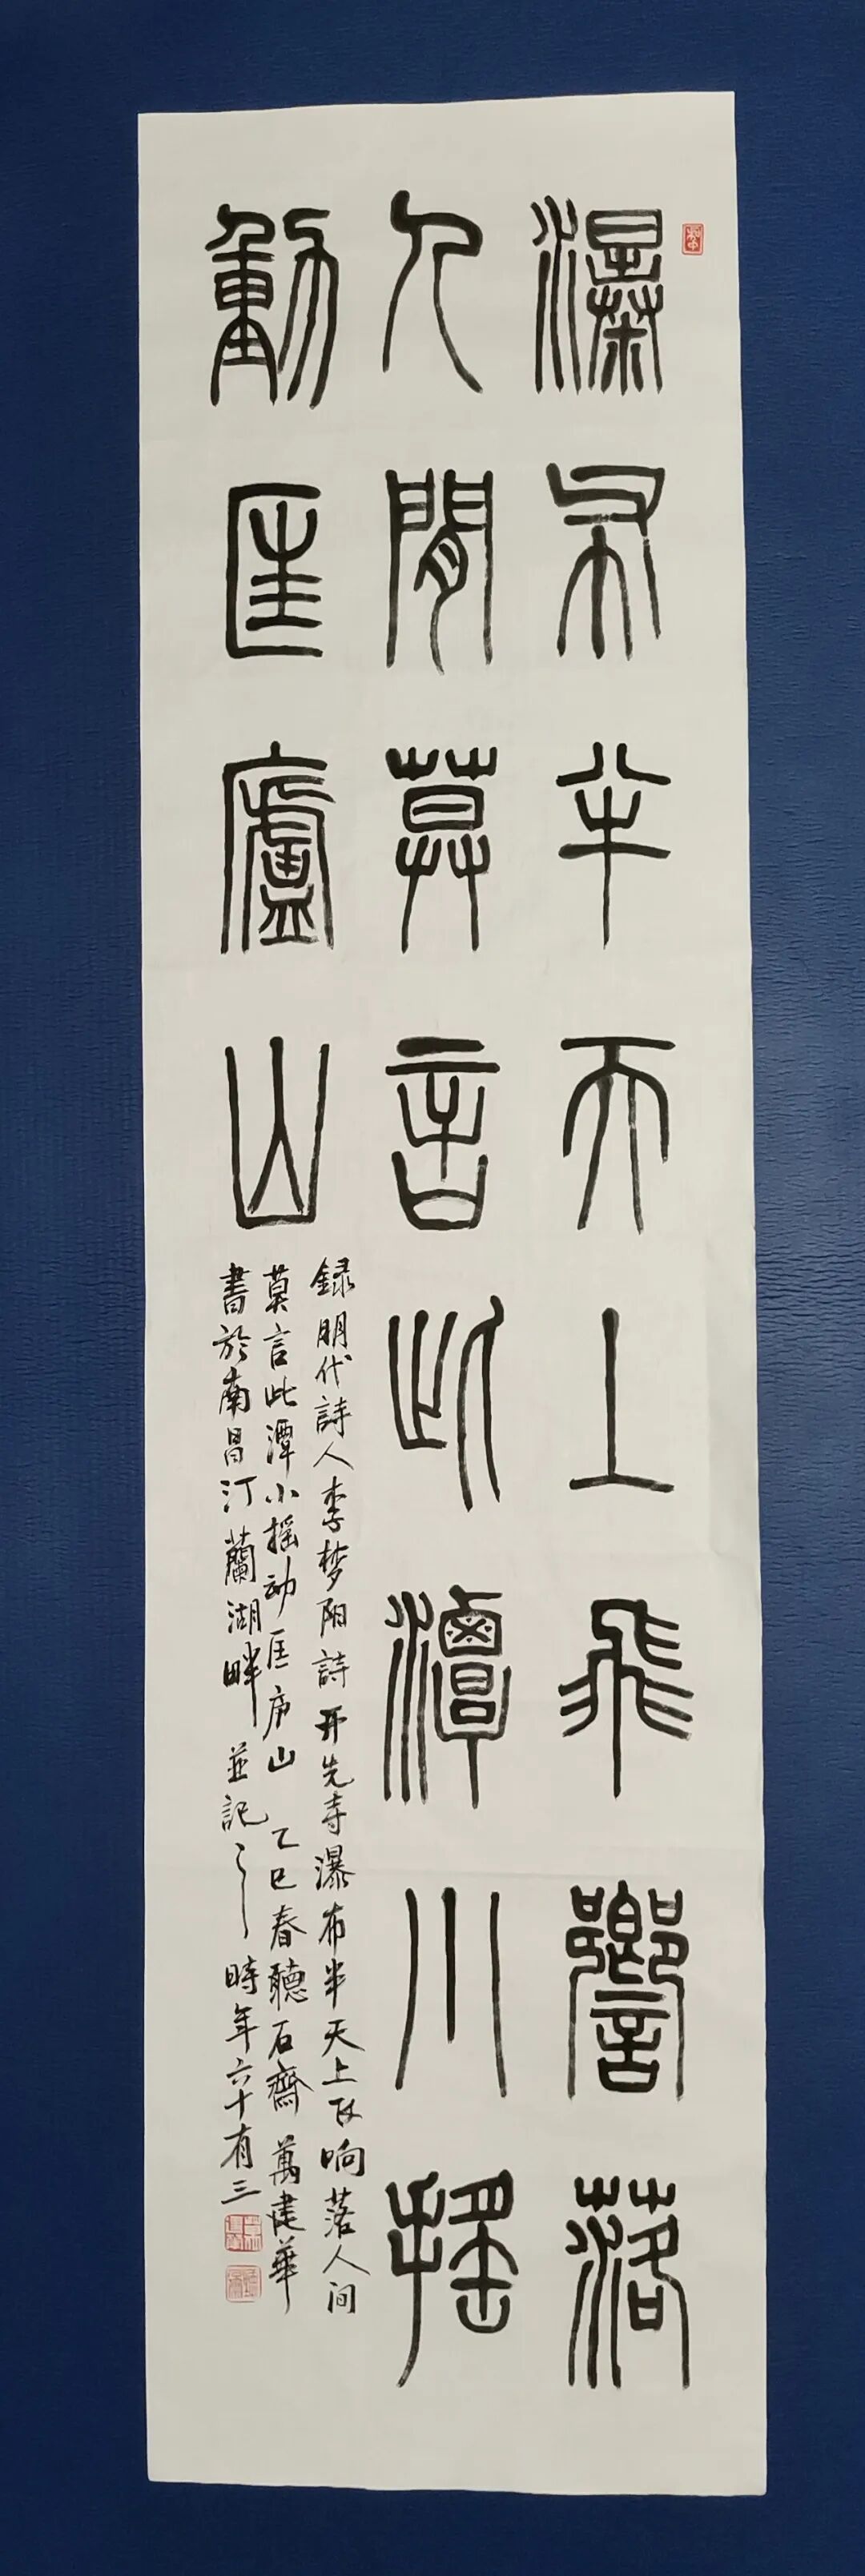 瀑布半天上飛響落
人間莫言此潭小搖
動匡廬山
録明代詩人李梦阳詩开先寺瀑布半天上飞响落人间
莫言此潭小摇动匡庐山 乙巳春聽石齋萬建華
書於南昌汀蘭湖畔並記之 時年六十有三